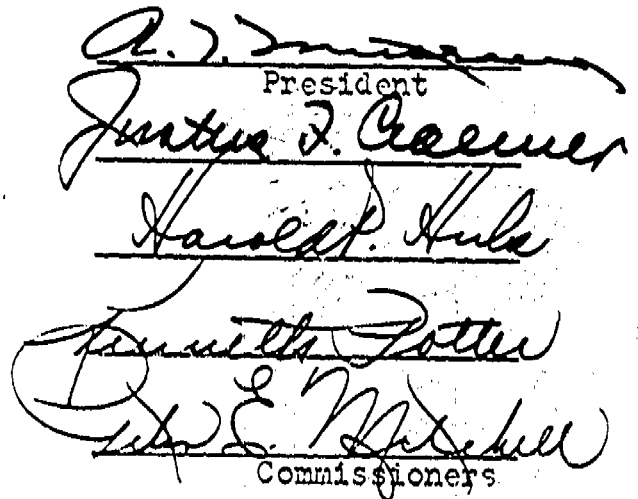 R. T. 
President
Justus F. Craemer
Harold P. Huls
Kenneth Potter
Peter E. Mitchell
Commissioners